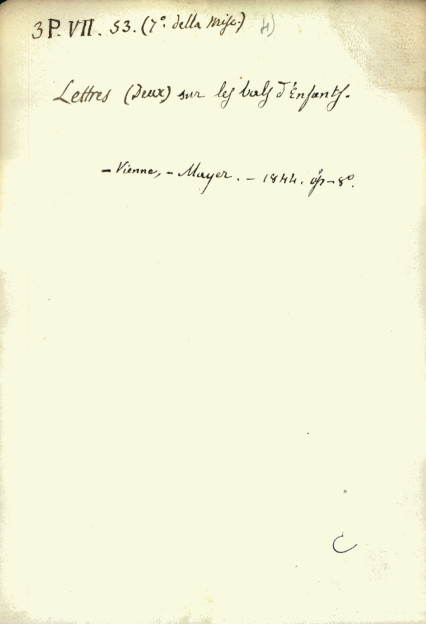 3 P. VII. 53. (7º. della Misc.) 4)
Lettres (Deux) sur les bals d'Enfants.
- Vienne, - Mayer. - 1844. op - 8º.
C